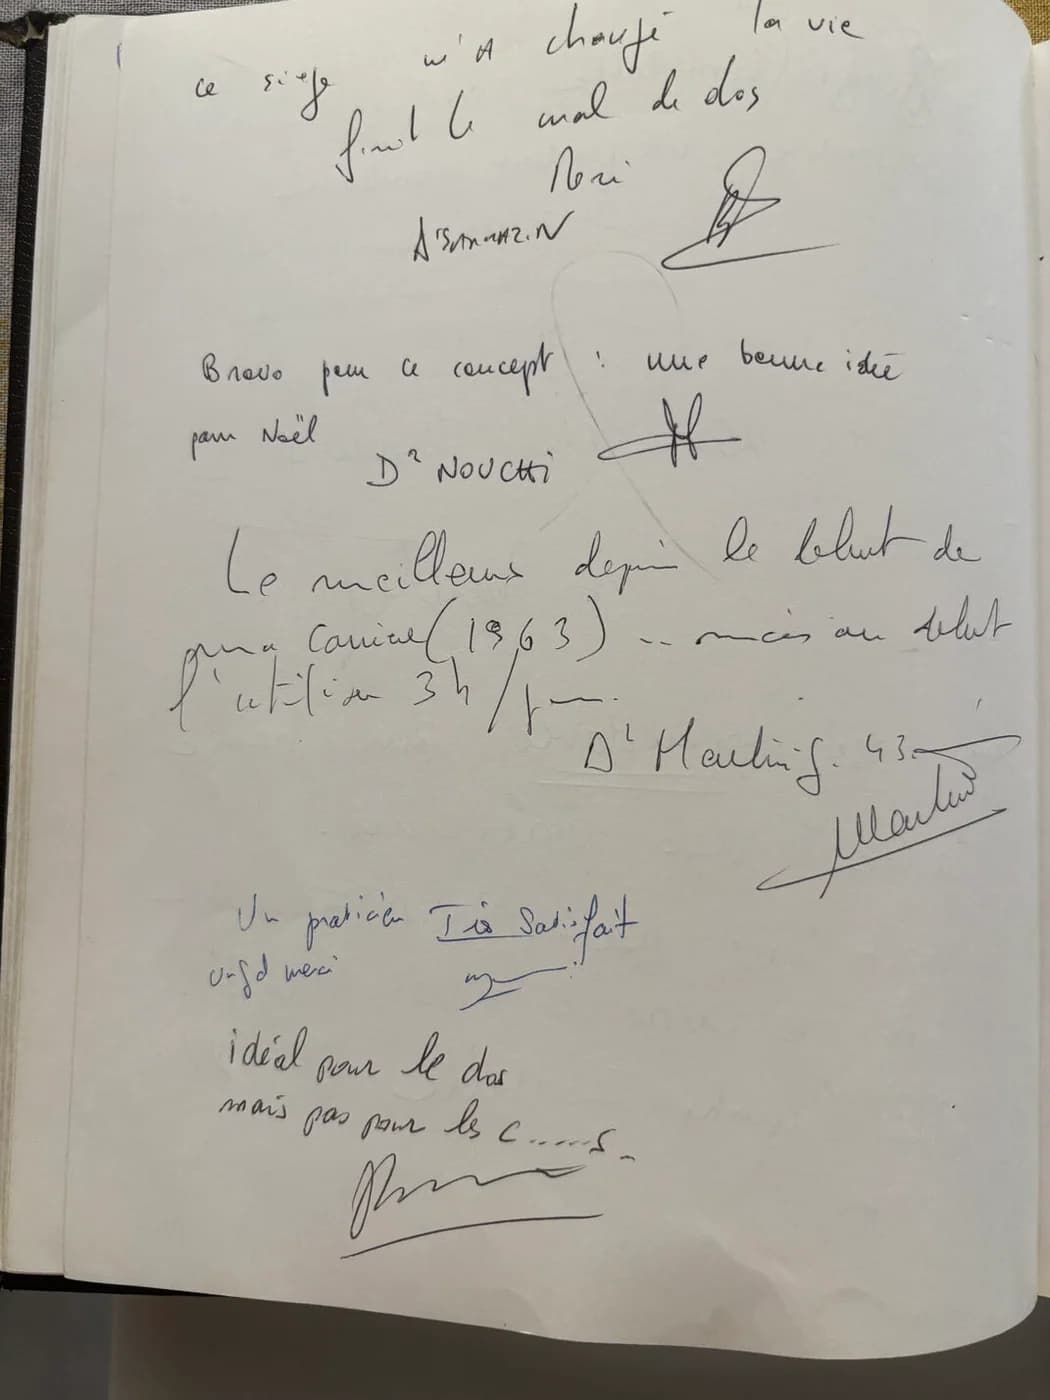 ce siège m'A changé la vie
finit le mal de dos
Merci
Dr SARRAZIN
Bravo pour ce concept : une bonne idée
pour Noël
Dr NOUCHI
Le meilleur depuis le début de
ma carrière (1963) .. mais au début
l'utiliser 3h/jour.
Dr Martin G. 43
Martin
Un praticien Très Satisfait
un gd merci
idéal pour le dos
mais pas pour les c.....s.